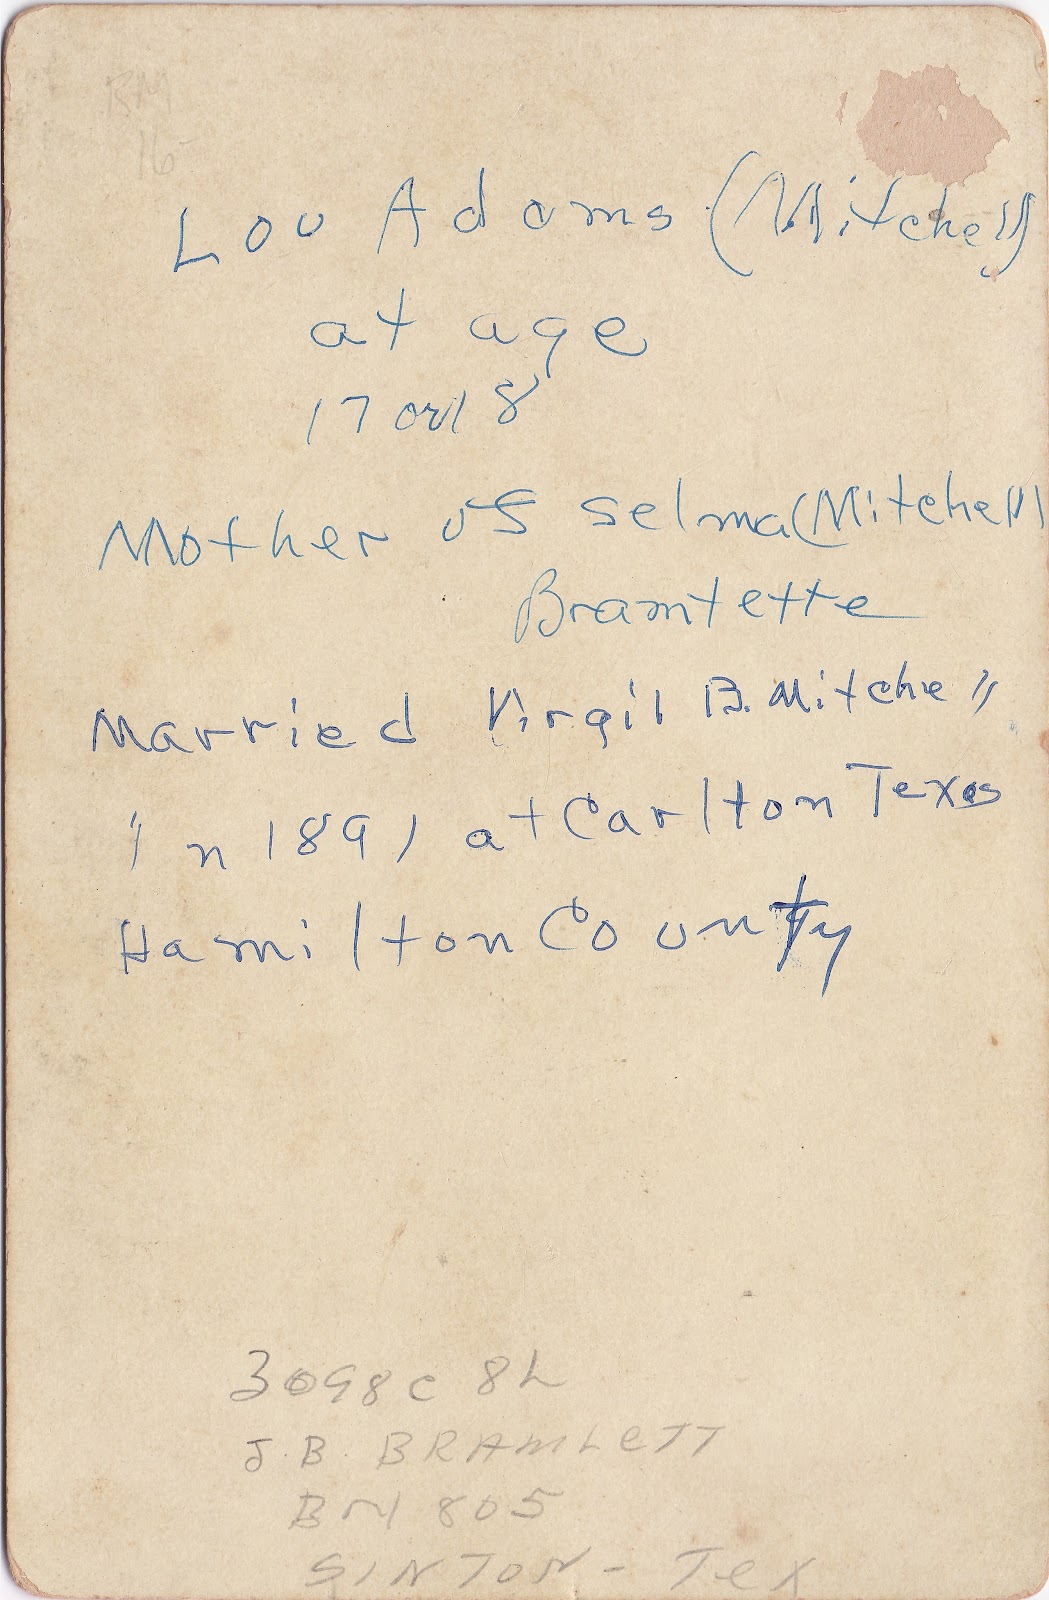 BM
16
Lou Adams (Mitchell)
at age
17 or 18
Mother of Selma (Mitchell)
Bramtette
Married Virgil B. Mitchell
in 1891 at Carlton Texas
Hamilton County
3098c 8L
J.B. BRAMLETT
805
SINTON - Tex